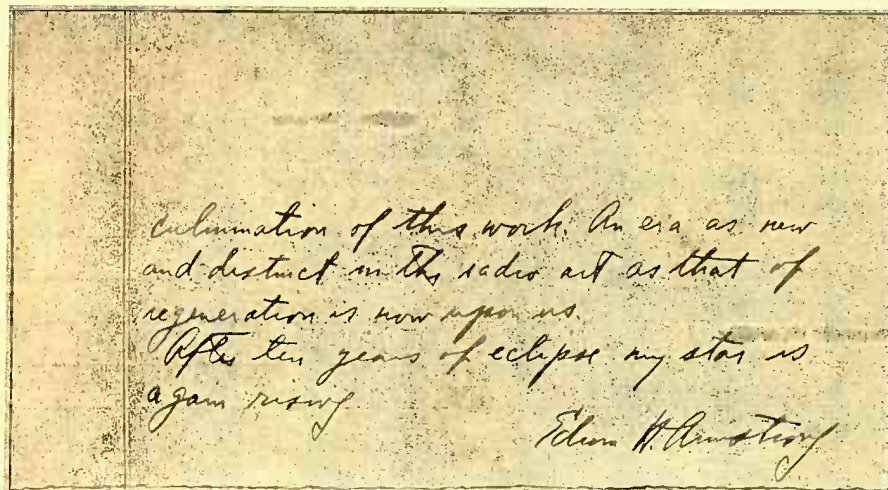 culmination of this work. An era as new
and distinct in the radio art as that of
regeneration is now upon us.
After ten years of eclipse my star is
again rising
Edwin H. Armstrong